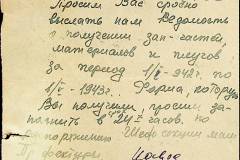 Просим Вас срочно
выслать нам Ведомость
о получении зап-частей,
материалов и плугов
за период 1/I - 942г. по
1/I - 1943г. Форма, которую
Вы получили, просим за-
полнить в 24 часов, но
распоряжению Шеф секции маш